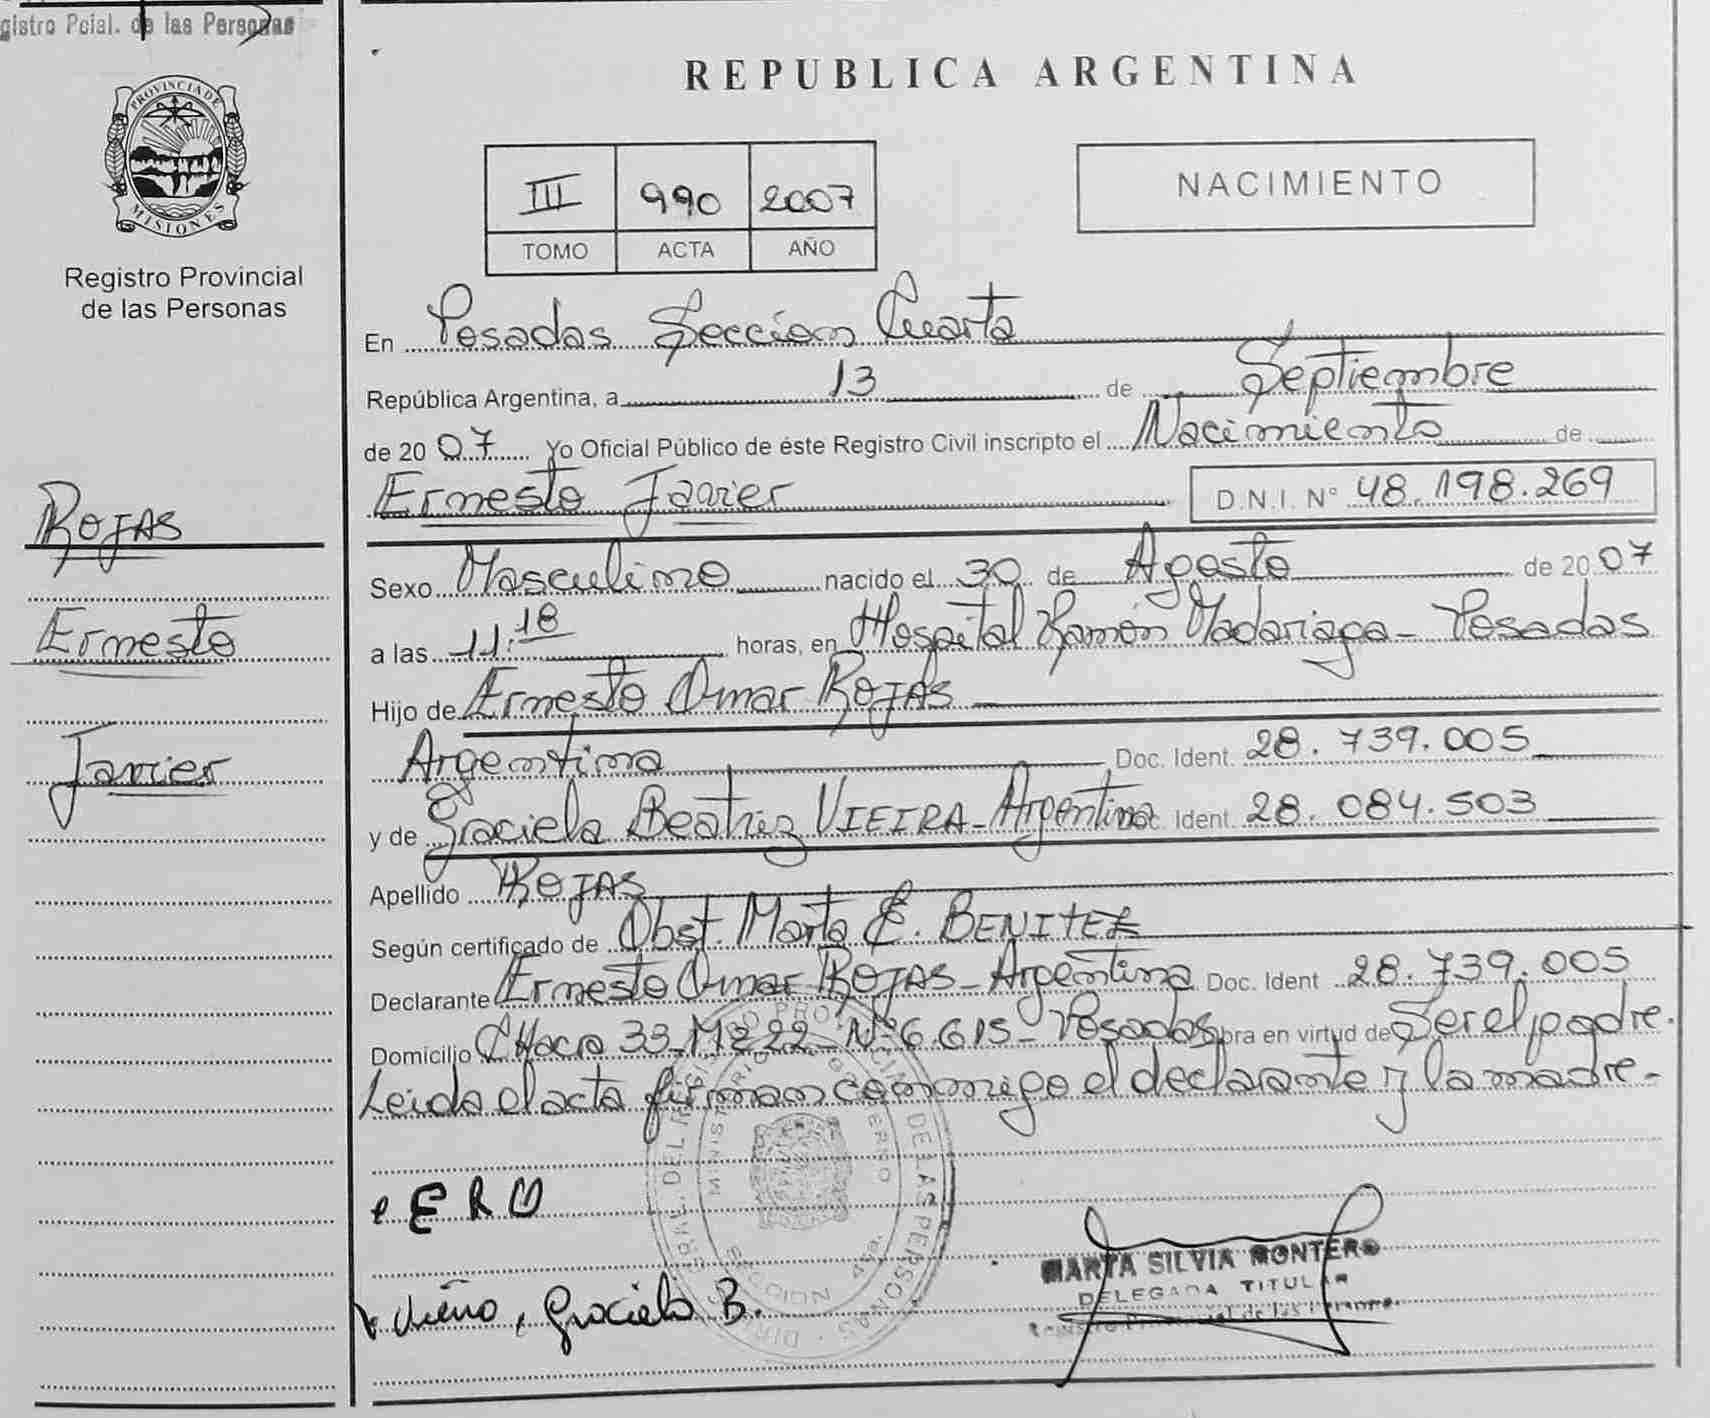 gistro Pcial. de las Personas
PROVINCIA DE
MISIONES
Registro Provincial
de las Personas
ROJAS
Ernesto
Javier
REPUBLICA ARGENTINA
III 990 2007
TOMO ACTA AÑO
NACIMIENTO
En Posadas Seccion Cuarta
República Argentina, a 13 de Septiembre
de 2007 Yo Oficial Público de éste Registro Civil inscripto el Nacimiento de
Ernesto Javier D.N.I. N° 48.198.269
Sexo Masculino nacido el 30 de Agosto de 2007
a las 11:18 horas, en Hospital Ramón Madariaga - Posadas
Hijo de Ernesto Omar ROJAS
Argentina Doc. Ident. 28.739.005
y de Graciela Beatriz VIEIRA - Argentina Doc. Ident. 28.084.503
Apellido ROJAS
Según certificado de Obst. Marta E. BENITEZ
Declarante Ernesto Omar ROJAS - Argentina Doc. Ident 28.739.005
Domicilio CHacra 33 - Mz 22 - N° 6.615 - Posadas obra en virtud de Ser el padre.
Leida el acta firman conmigo el declarante y la madre -
E R O
Graciela B.
MARTA SILVIA MONTERO
DELEGADA TITULAR
Registro Provincial de las Personas